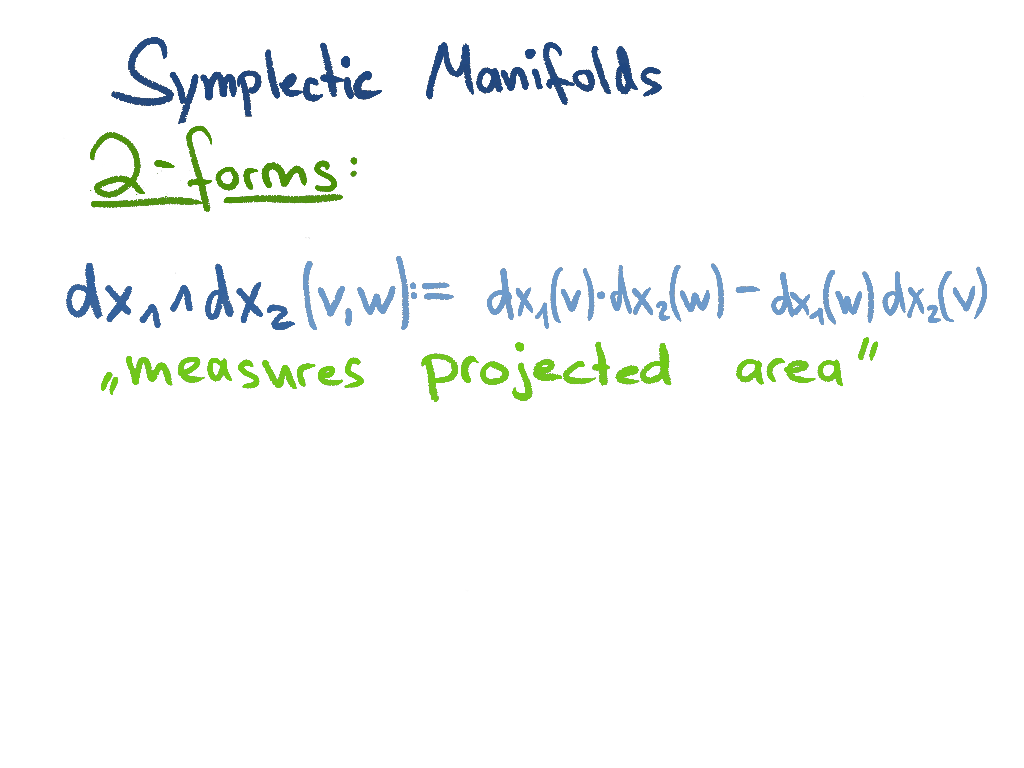 Symplectic Manifolds
2-forms:
dx₁ ∧ dx₂ (v,w) := dx₁(v)·dx₂(w) - dx₁(w) dx₂(v)
„measures projected area"